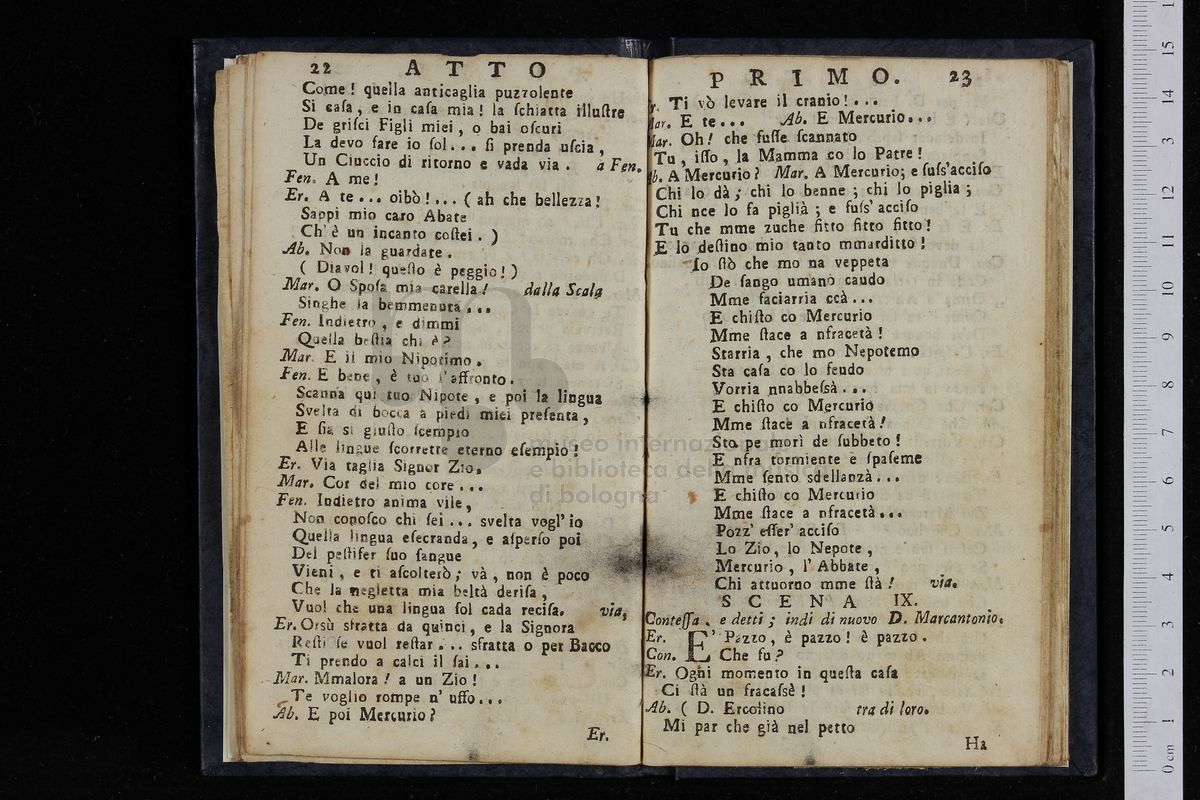 22 ATTO
Come! quella anticaglia puzzolente
Si caſa, e in caſa mia! la ſchiatta illuſtre
De griſci Figli miei, o bai oſcuri
La devo fare io ſol... ſi prenda uſcia,
Un Ciuccio di ritorno e vada via. a Fen.
Fen. A me!
Er. A te... oibò!... (ah che bellezza!
Sappi mio caro Abate
Ch'è un incanto coſtei.)
Ab. Non la guardate.
(Diavol! queſto è peggio!)
Mar. O Spoſa mia carella! dalla Scala
Singhe la bemmenuta...
Fen. Indietro, e dimmi
Quella beſtia chi è?
Mar. E il mio Nipotimo.
Fen. E bene, è tuo l'affronto.
Scanna qui tuo Nipote, e poi la lingua
Svelta di bocca a piedi miei preſenta,
E ſia si giuſto ſcempio
Alle lingue ſcorrette eterno eſempio!
Er. Via taglia Signor Zio,
Mar. Cor del mio core...
Fen. Indietro anima vile,
Non conoſco chi ſei... svelta vogl'io
Quella lingua eſecranda, e aſperſo poi
Del peſtifer ſuo ſangue
Vieni, e ti aſcolterò; và, non è poco
Che la negletta mia beltà deriſa,
Vuol che una lingua ſol cada reciſa. via,
Er. Orsù sfratta da quinci, e la Signora
Reſti ſe vuol reſtar... sfratta o per Bacco
Ti prendo a calci il ſai...
Mar. Mmalora! a un Zio!
Te voglio rompe n'uſſo...
Ab. E poi Mercurio?
Er.
PRIMO. 23
r. Ti vò levare il cranio!...
Mar. E te... Ab. E Mercurio...
Mar. Oh! che fuſſe ſcannato
Tu, iſſo, la Mamma co lo Patre!
Ab. A Mercurio? Mar. A Mercurio; e fuſs'acciſo
Chi lo dà; chi lo benne; chi lo piglia;
Chi nce lo fa piglià; e fuſs'acciſo
Tu che mme zuche fitto fitto fitto!
E lo deſtino mio tanto mmarditto!
Io ſtò che mo na veppeta
De ſango umano caudo
Mme faciarria ccà...
E chiſto co Mercurio
Mme ſtace a nfracetà!
Starria, che mo Nepotemo
Sta caſa co lo feudo
Vorria nnabbeſsà...
E chiſto co Mercurio
Mme ſtace a nfracetà!
Sto pe morì de ſubbeto!
E nfra tormiente e ſpaſeme
Mme ſento sdellanzà...
E chiſto co Mercurio
Mme ſtace a nfracetà...
Pozz'eſſer'acciſo
Lo Zio, lo Nepote,
Mercurio, l'Abbate,
Chi attuorno mme ſtà! via.
SCENA IX.
Conteſſa, e detti; indi di nuovo D. Marcantonio.
Er. E' Pazzo, è pazzo! è pazzo.
Con. Che fu?
Er. Oghi momento in queſta caſa
Ci ſtà un fracaſsè!
Ab. (D. Ercolino tra di loro.
Mi par che già nel petto
Ha
museo internazionale
e biblioteca della musica
di bologna